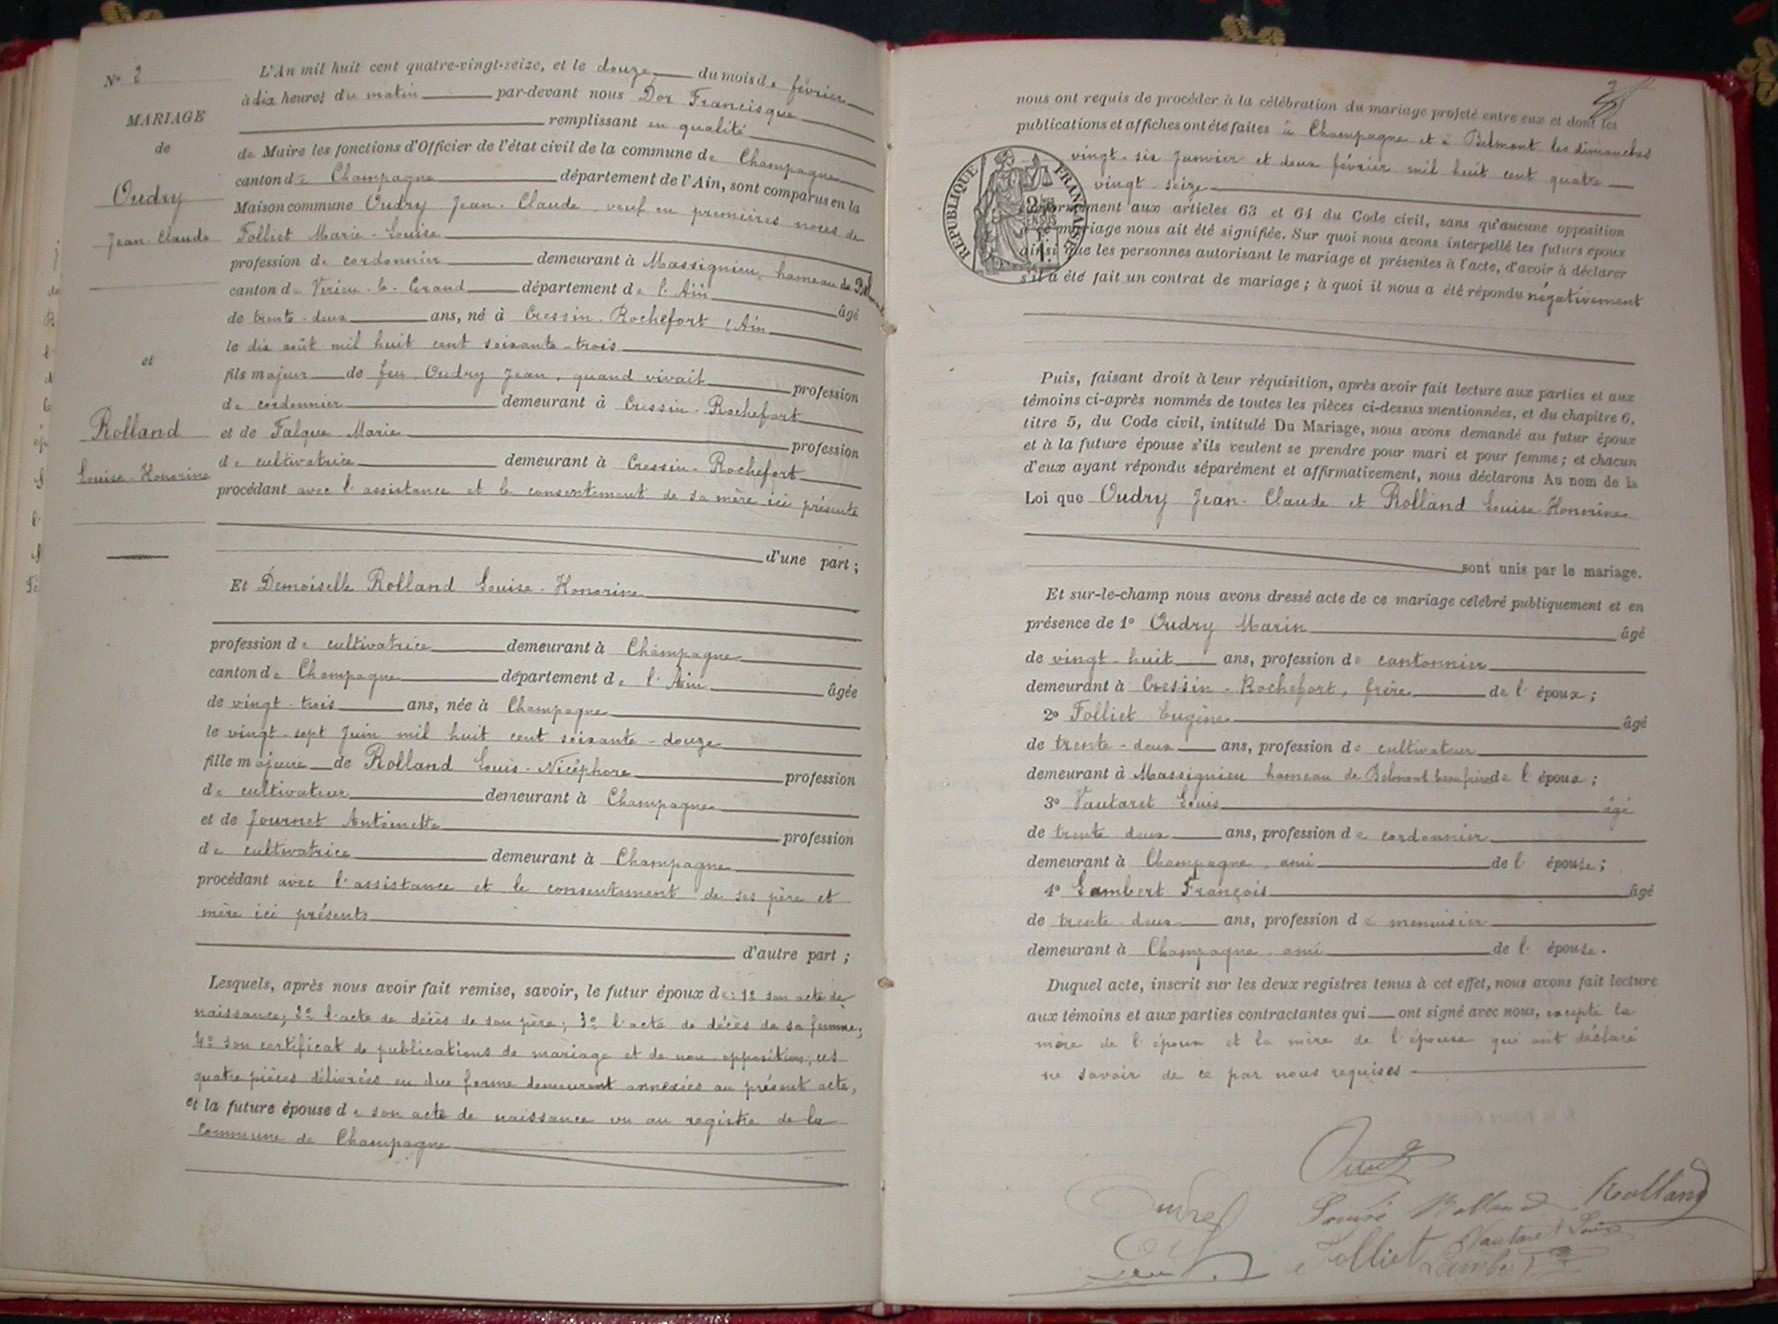 N° 2
MARIAGE
de
Oudry
Jean-Claude
et
Rolland
Louise-Honorine
L'An mil huit cent quatre-vingt-seize, et le douze du mois de février
à dix heures du matin par-devant nous Dor Francisque
remplissant en qualité
de Maire les fonctions d'Officier de l'état civil de la commune de Champagne
canton de Champagne département de l'Ain, sont comparus en la
Maison commune Oudry Jean-Claude, veuf en premières noces de
Folliet Marie-Louise
profession de cordonnier demeurant à Massignieu, hameau de
canton de Virieu-le-Grand département de l'Ain âgé
de trente-deux ans, né à Cressin-Rochefort (Ain
le dix août mil huit cent soixante-trois
fils majeur de feu Oudry Jean, quand vivait profession
de cordonnier demeurant à Cressin-Rochefort
et de Falque Marie profession
de cultivatrice demeurant à Cressin-Rochefort
procédant avec l'assistance et le consentement de sa mère ici présente
d'une part;
Et Demoiselle Rolland Louise-Honorine
profession de cultivatrice demeurant à Champagne
canton de Champagne département de l'Ain âgée
de vingt-trois ans, née à Champagne
le vingt-sept Juin mil huit cent soixante-douze
fille majeure de Rolland Louis-Nicéphore profession
de cultivateur demeurant à Champagne
et de Journet Antoinette profession
de cultivatrice demeurant à Champagne
procédant avec l'assistance et le consentement de ses père et
mère ici présents
d'autre part;
Lesquels, après nous avoir fait remise, savoir, le futur époux de: 1° son acte de
naissance; 2° l'acte de décès de son père; 3° l'acte de décès de sa femme;
4° son certificat de publications de mariage et de non opposition, ces
quatre pièces délivrées en due forme demeurent annexées au présent acte,
et la future épouse de son acte de naissance vu au registre de la
commune de Champagne
nous ont requis de procéder à la célébration du mariage projeté entre eux et dont les
publications et affiches ont été faites à Champagne et à Belmont les dimanches
vingt-six Janvier et deux février mil huit cent quatre
vingt-seize
REPUBLIQUE FRANÇAISE
aux articles 63 et 64 du Code civil, sans qu'aucune opposition
mariage nous ait été signifiée. Sur quoi nous avons interpellé les futurs époux
ainsi que les personnes autorisant le mariage et présentes à l'acte, d'avoir à déclarer
s'il a été fait un contrat de mariage; à quoi il nous a été répondu négativement
Puis, faisant droit à leur réquisition, après avoir fait lecture aux parties et aux
témoins ci-après nommés de toutes les pièces ci-dessus mentionnées, et du chapitre 6,
titre 5, du Code civil, intitulé Du Mariage, nous avons demandé au futur époux
et à la future épouse s'ils veulent se prendre pour mari et pour femme; et chacun
d'eux ayant répondu séparément et affirmativement, nous déclarons Au nom de la
Loi que Oudry Jean-Claude et Rolland Louise-Honorine
sont unis par le mariage.
Et sur-le-champ nous avons dressé acte de ce mariage célébré publiquement et en
présence de 1° Oudry Marin âgé
de vingt-huit ans, profession de cantonnier
demeurant à Cressin-Rochefort, frère de l'époux;
2° Folliet Eugène âgé
de trente-deux ans, profession de cultivateur
demeurant à Massignieu hameau de Belmont beau frère de l'époux;
3° Vautaret Louis âgé
de trente deux ans, profession de cordonnier
demeurant à Champagne, ami de l'épouse;
4° Lambert François âgé
de trente-deux ans, profession de menuisier
demeurant à Champagne ami de l'épouse.
Duquel acte, inscrit sur les deux registres tenus à cet effet, nous avons fait lecture
aux témoins et aux parties contractantes qui ont signé avec nous, excepté la
mère de l'époux et la mère de l'épouse qui ont déclaré
ne savoir de ce par nous requises
Rolland
Vautaret Louis
Folliet
Lambert